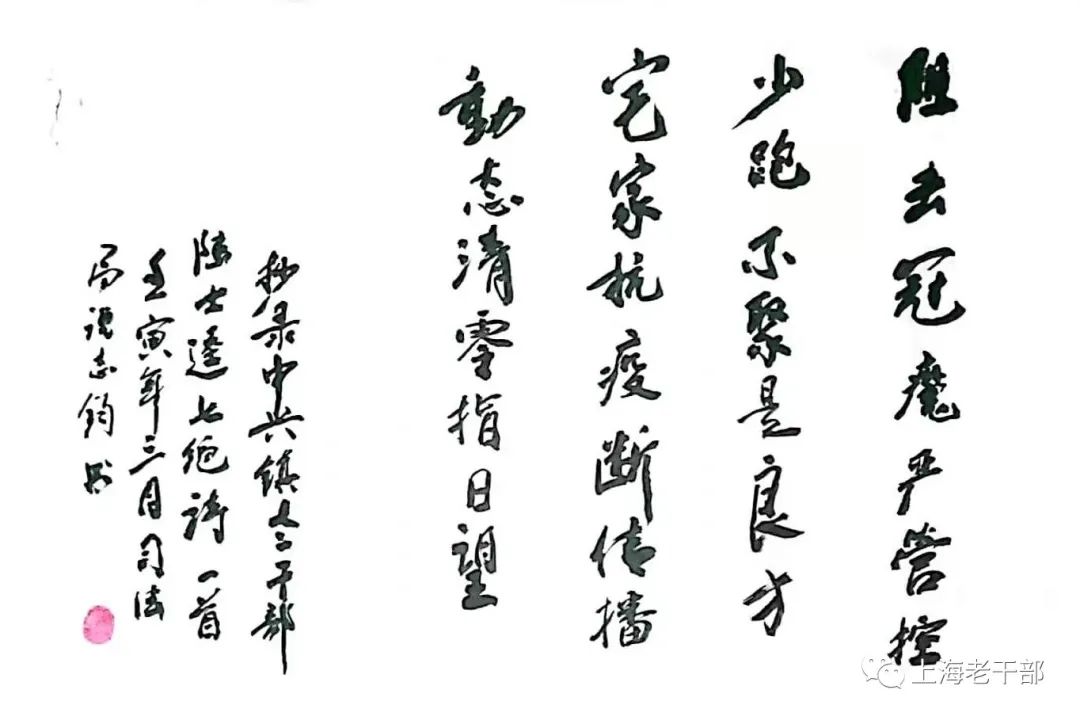 阻去冠魔严管控
少跑不聚是良方
宅家抗疫断传播
動态清零指日望
抄录中兴镇老干部
陆士達七绝诗一首
壬寅年三月司法
局 志钧书
上海老干部